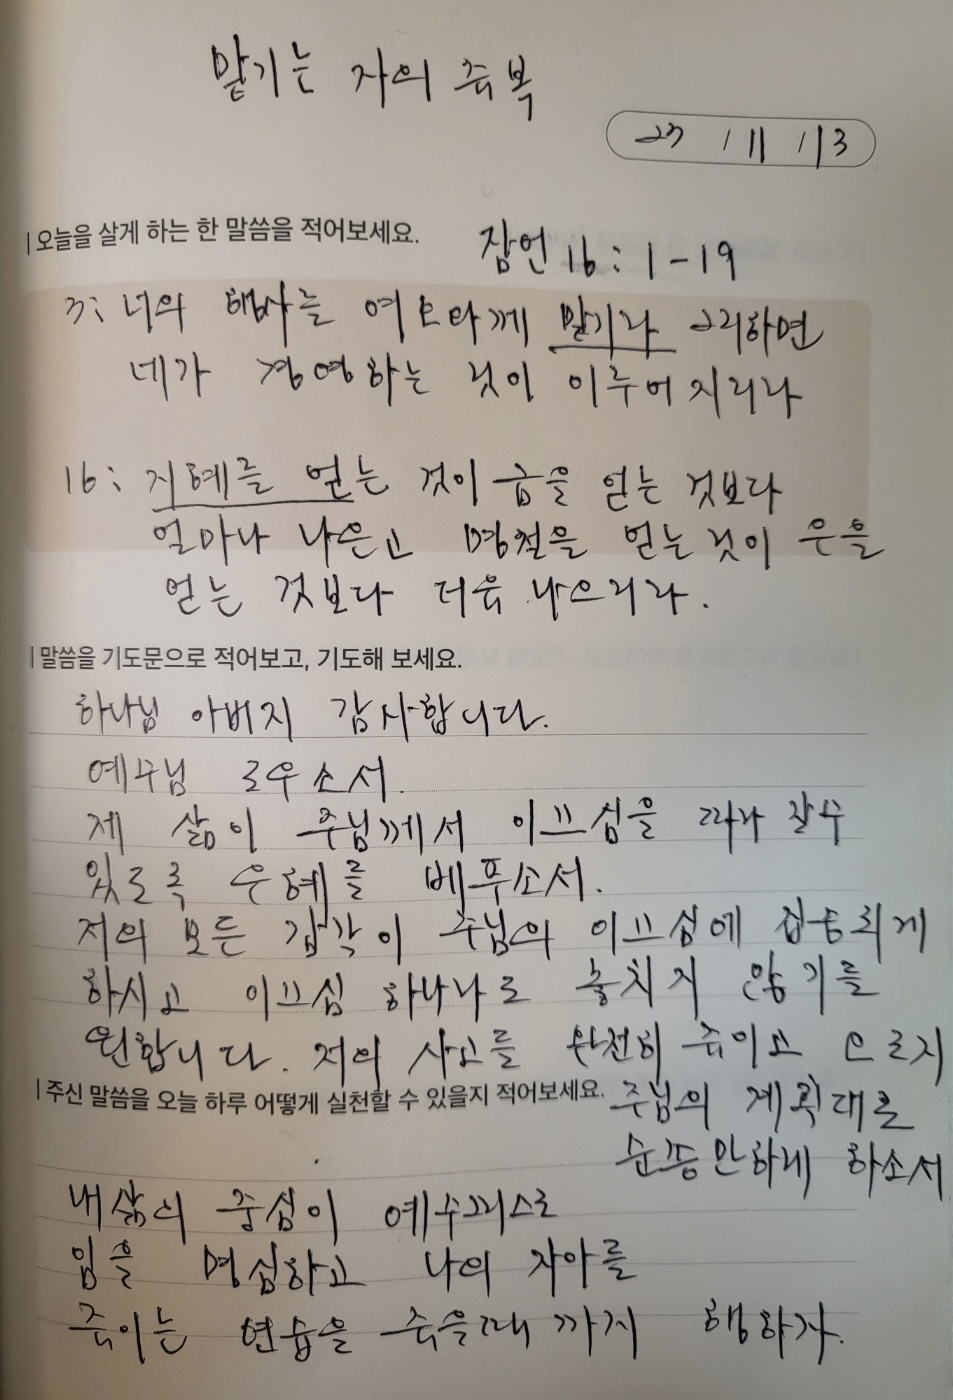 맡기는 자의 축복
23 / 11 / 13
오늘을 살게 하는 한 말씀을 적어보세요.
잠언 16 : 1 - 19
3: 너의 행사를 여호와께 맡기라 그리하면
네가 경영하는 것이 이루어지리라
16: 지혜를 얻는 것이 금을 얻는 것보다
얼마나 나은고 명철을 얻는 것이 은을
얻는 것보다 더욱 나으리라.
말씀을 기도문으로 적어보고, 기도해 보세요.
하나님 아버지 감사합니다.
예수님 도우소서.
제 삶이 주님께서 이끄심을 따라 갈수
있도록 은혜를 베푸소서.
저의 모든 감각이 주님의 이끄심에 집중되게
하시고 이끄심 하나나로 놓치지 않기를
원합니다. 저의 사고를 완전히 죽이고 오로지
주님의 계획대로
순종만하게 하소서
주신 말씀을 오늘 하루 어떻게 실천할 수 있을지 적어보세요.
내삶의 중심이 예수그리스도
임을 명심하고 나의 자아를
죽이는 연습을 죽을때 까지 행하자.